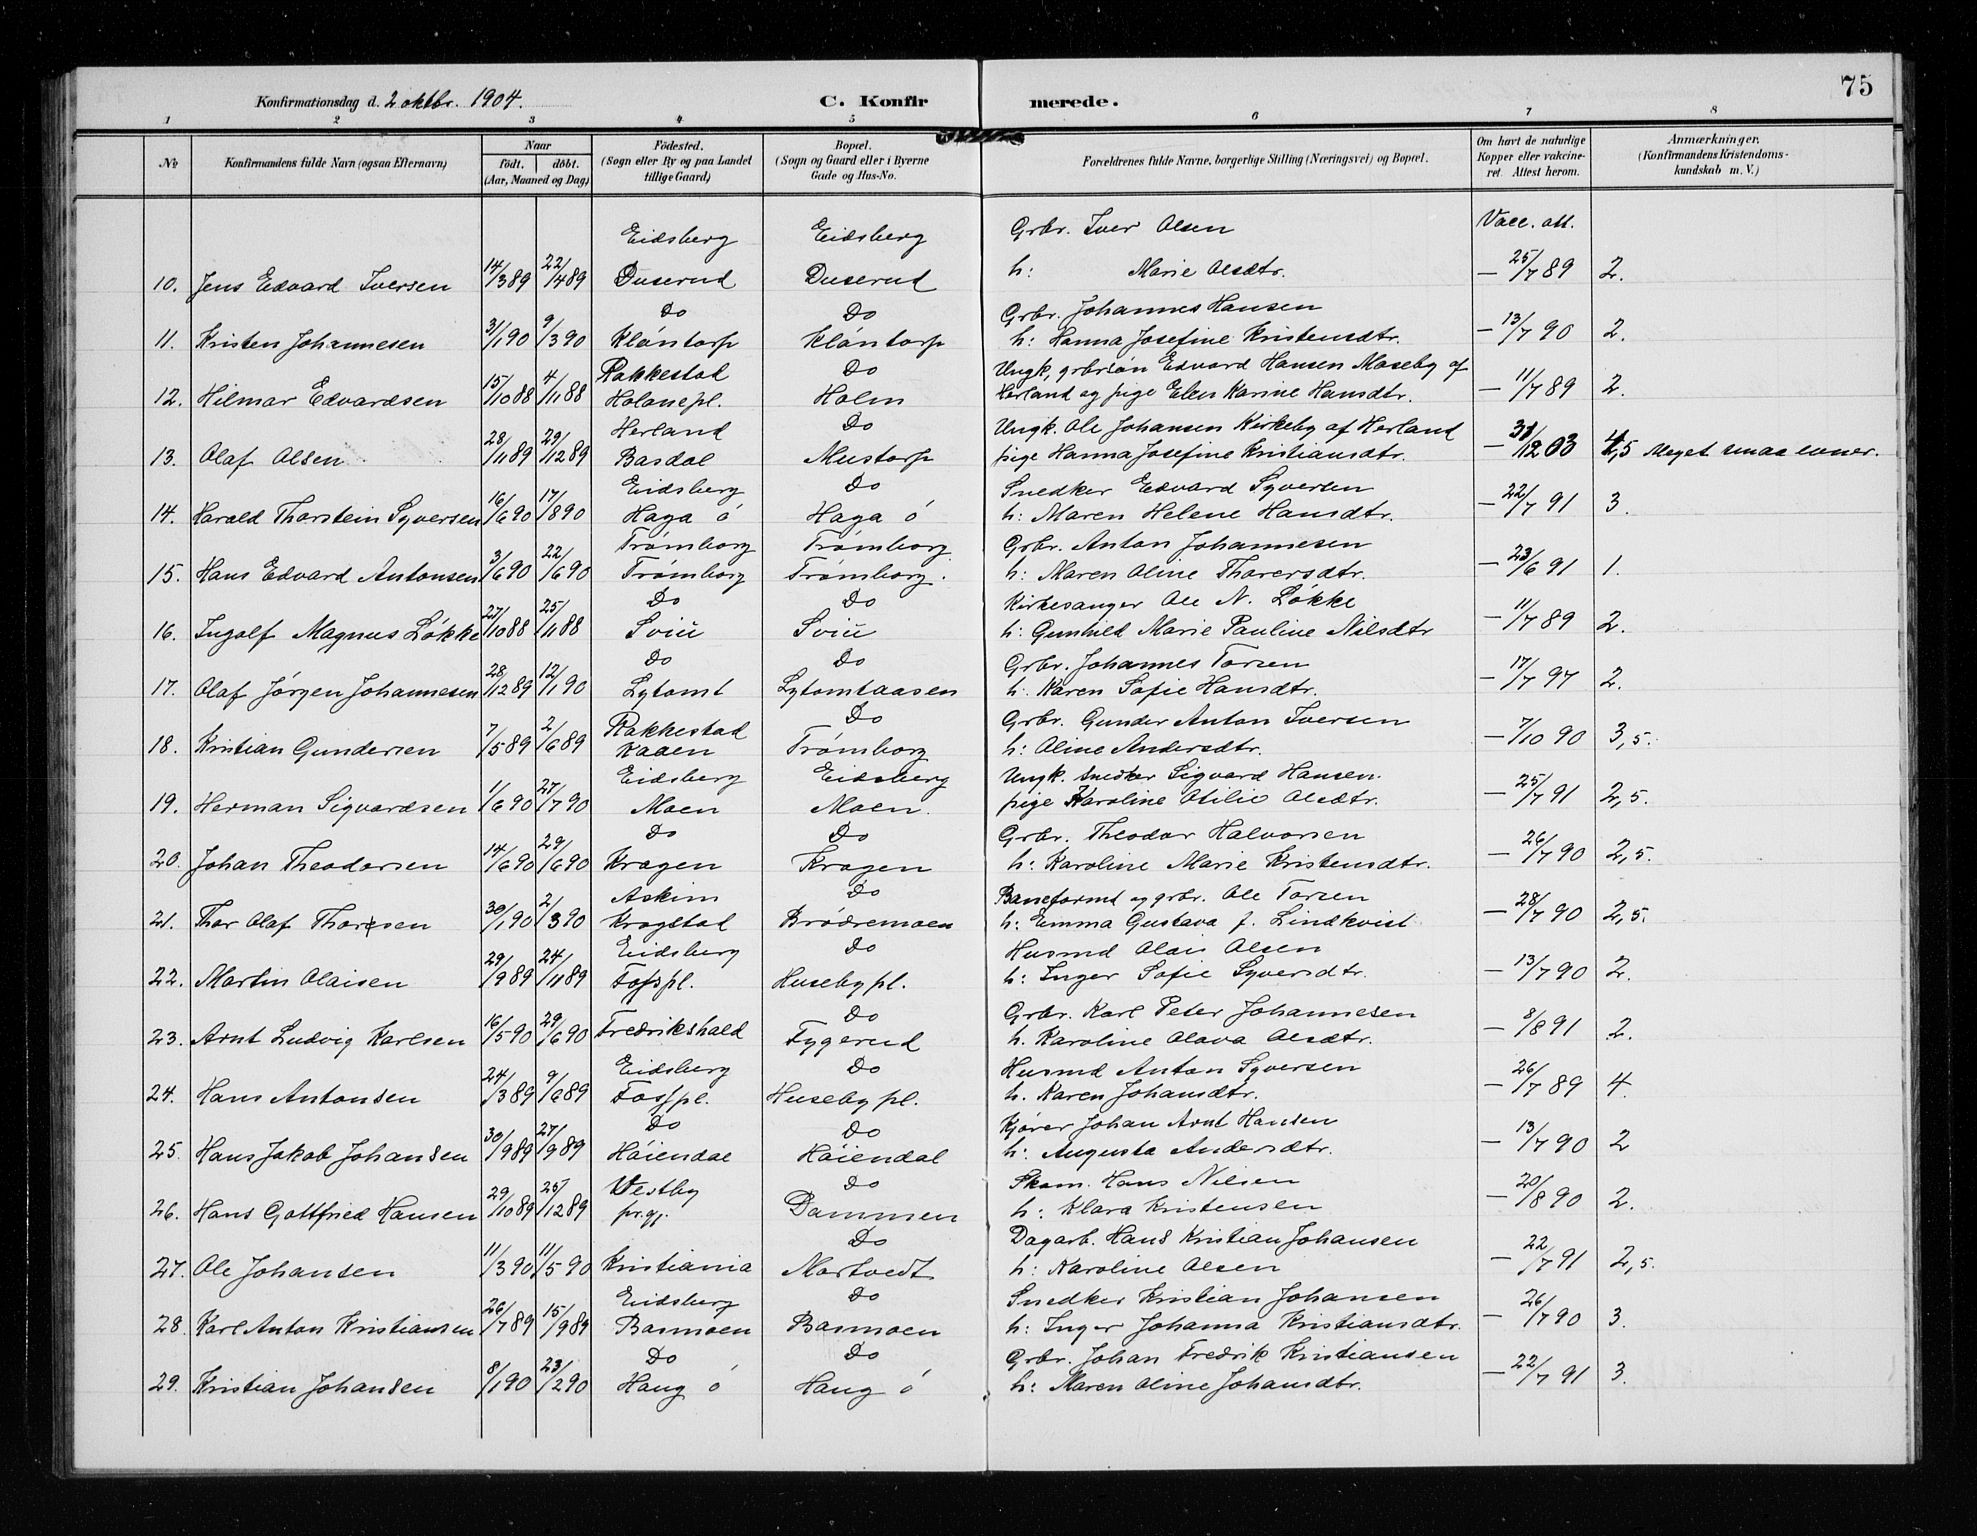 75
Konfirmationsdag d. 2 oktbr. 1904. C. Konfirmerede.
1 2 3 4 5 6 7 8
No Konfirmandens fulde Navn (ogsaa Efternavn) Naar født. døbt. (Aar, Maaned og Dag) Fødested. (Sogn eller By og paa Landet tillige Gaard) Bopæl. (Sogn og Gaard eller i Byerne Gade og Hus-No. Forældrenes fulde Navne, borgerlige Stilling (Næringsvei) og Bopæl. Om havt de naturlige Kopper eller vakcineret. Attest herom. Anmærkninger. (Konfirmandens Kristendomskundskab m. V.)
Eidsberg Eidsberg Grbr. Iver Olsen Vacc. att.
10. Jens Edvard Iversen 14/3 89 22/4 89 Duserud Duserud h: Marie Olsdtr. — 25/7 89 2.
Do Do Grbr. Johannes Hansen
11. Kristen Johannesen 3/1 90 9/3 90 Kløntorp Kløntorp h: Hanna Josefine Kristensdtr. — 13/7 90 2.
Rakkestad Do Ungk, grbrsøn Edvard Hansen Moseby af
12. Hilmar Edvardsen 15/10 88 4/11 88 Holonepl. Holm Herland og pige Elen Karine Hansdtr. — 11/7 89 2.
Herland Do Ungk. Ole Johansen Kirkeby af Herland
13. Olaf Olsen 28/11 89 29/12 89 Basdal Mustorp pige Hanna Josefine Kristiansdtr. — 31/12 03 4,5 Meget smaa evner.
Eidsberg Do Snedker Edvard Syversen
14. Harald Thorstein Syversen 16/6 90 17/8 90 Haga ó Haga ó h: Maren Helene Hansdtr. — 22/7 91 3.
Trømborg Trømborg Grbr. Anton Johannesen
15. Hans Edvard Antonsen 3/6 90 22/6 90 Trømborg Trømborg. h: Maren Oline Thorersdtr. — 23/6 91 1.
Do Do Kirkesanger Ole N. Løkke
16. Ingolf Magnus Løkke 27/10 88 25/11 88 Sviü Sviü h: Gunhild Marie Pauline Nilsdtr — 11/7 89 2.
Do Do Grbr. Johannes Torsen
17. Olaf Jørgen Johannesen 28/12 89 12/1 90 Lytomt Lytomtaasen h: Karen Sofie Hansdtr. — 17/7 97 2.
Rakkestad Do Grbr. Gunder Anton Iversen
18. Kristian Gundersen 7/5 89 2/6 89 Kaaen Trømborg h: Oline Andersdtr. — 7/10 90 3,5.
Eidsberg Eidsberg Ungk. snedker Sigvard Hansen.
19. Herman Sigvardsen 1/6 90 27/7 90 Moen Moen. pige Karoline Otilie Olsdtr. — 25/7 91 2,5.
Do Do Grbr. Theodor Halvorsen
20. Johan Theodorsen 14/6 90 29/6 90 Kragen Kragen h: Karoline Marie Kristensdtr. — 26/7 90 2,5.
Askim Do Baneformd og grbr. Ole Torsen
21. Thor Olaf Thoresen 30/1 90 2/3 90 Krogstad Brødremoen h: Emma Gustava f. Lindkvist — 28/7 90 2,5.
Eidsberg Do Husmd Olai Olsen
22. Martin Olaisen 29/9 89 24/11 89 Fosspl. Huseby pl. h: Inger Sofie Syversdtr. — 13/7 90 2.
Do Grbr. Karl Peter Johannesen
23. Arnt Ludvig Karlsen 16/5 90 29/6 90 Fredrikshald Fygerud h. Karoline Olava Olsdtr. — 8/8 91 2.
Eidsberg Do Husmd Anton Syversen
24. Hans Antonsen 24/3 89 9/6 89 Fosspl. Huseby pl. h. Karen Johansdtr. — 26/7 89 4.
Do Do Kjører Johan Arnt Hansen
25. Hans Jakob Johansen 30/9 89 27/9 89 Høiendal Høiendal h: Augusta Andersdtr. — 13/7 90 2
Vestby Do Skom. Hans Nilsen
26. Hans Gottfried Hansen 29/10 89 25/12 89 prgj. Dammen h: Klara Kristensen — 20/8 90 2.
Do Dagarb. Hans Kristian Johansen
27. Ole Johansen 11/3 90 11/5 90 Kristiania Mortvedt h: Karoline Olsen — 22/7 91 2,5.
Eidsberg Do Snedker Kristian Johansen
28. Karl Anton Kristiansen 26/7 89 15/9 89 Basmoen Basmoen h: Inger Johanna Kristiansdtr. — 26/7 90 3.
Do Do Grbr. Johan Fredrik Kristiansen
29. Kristian Johansen 8/1 90 23/2 90 Haug ó Haug ó h: Maren Oline Johansdtr. — 22/7 91 3.